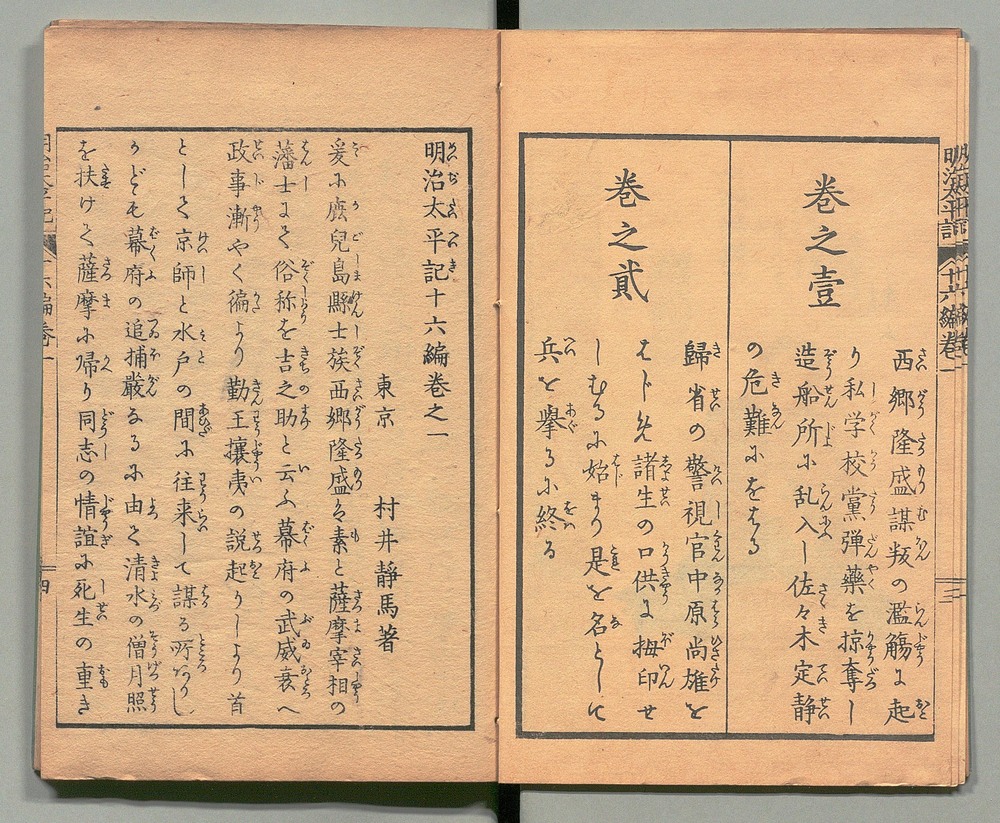 明治太平記 十六編巻一
巻之壹
西郷隆盛謀叛の濫觴に起
り私学校黨弾藥を掠奪し
造船所に乱入し佐々木定静
の危難にをはる
巻之貳
歸省の警視官中原尚雄を
はじめ諸生の口供に拇印せ
しむるに始まり是を名として
兵を擧るに終る
明治太平記十六編巻之一
東京 村井靜馬著
爰に麑兒島縣士族西郷隆盛は素と薩摩宰相の
藩士にて俗称を吉之助と云ふ幕府の武威衰へ
政事漸やく徧より勤王攘夷の説起りしより首
として京師と水戸の間に往来して謀る所ありし
かども幕府の追捕嚴なるに由て清水の僧月照
を扶けて薩摩に帰り同志の情誼に死生の重き
明治太平記 十六編巻一 四